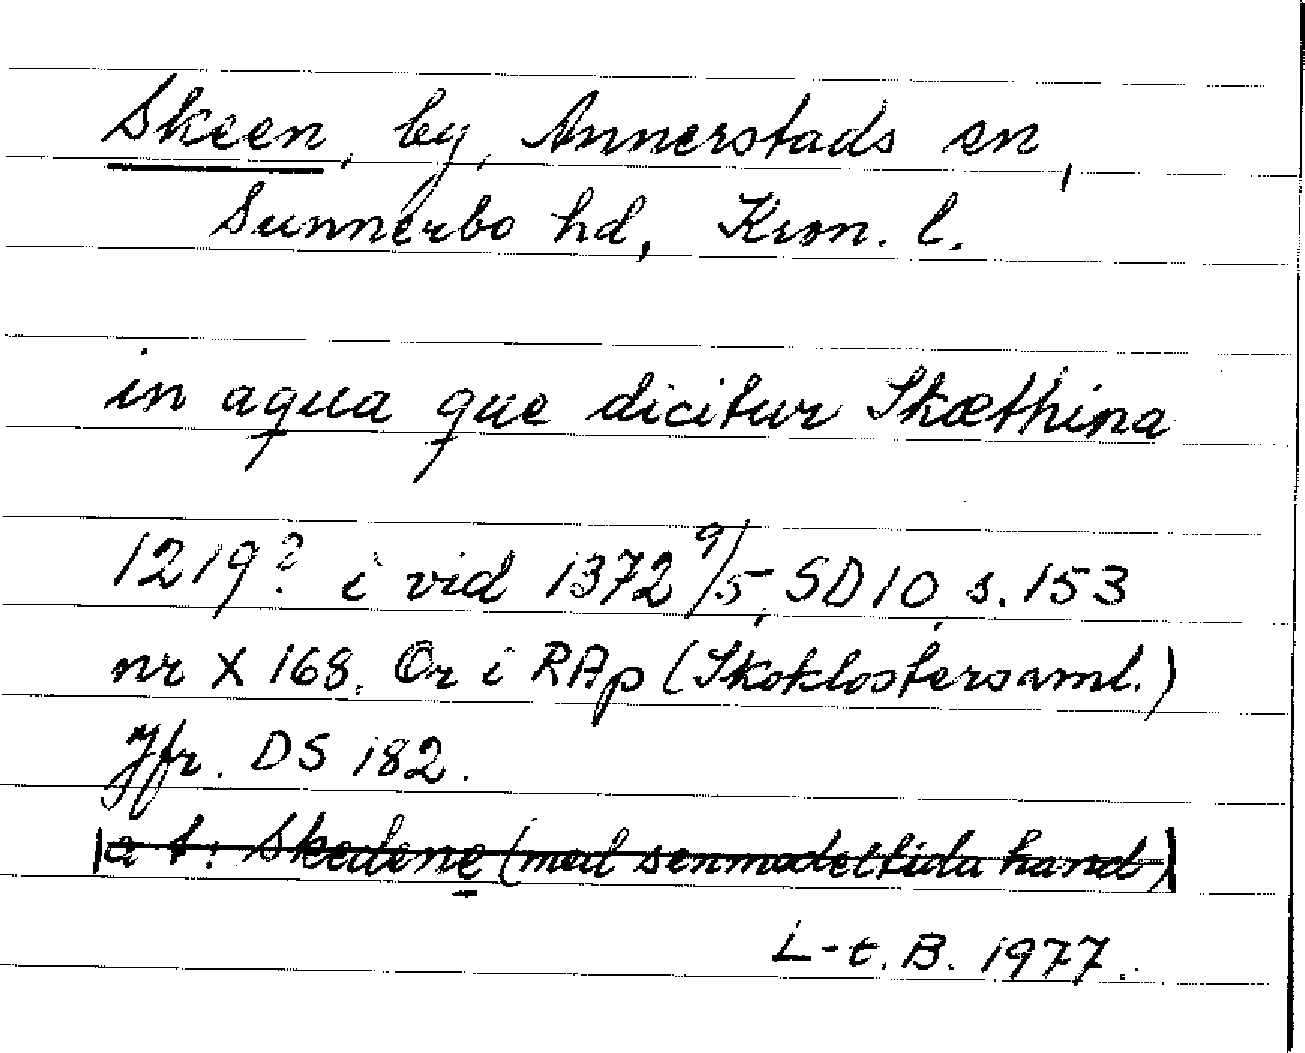 Skeen, by, Annerstads sn,
Sunnerbo hd, Kron. l.
in aqua que dicitur Skæthina
1219? i vid 1372 9/5, SD 10, s. 153
nr X 168. Or i RAp (Skoklostersaml.)
Jfr. DS 182.
a t: Skedene (med senmedeltida hand)
L-t. B. 1977.